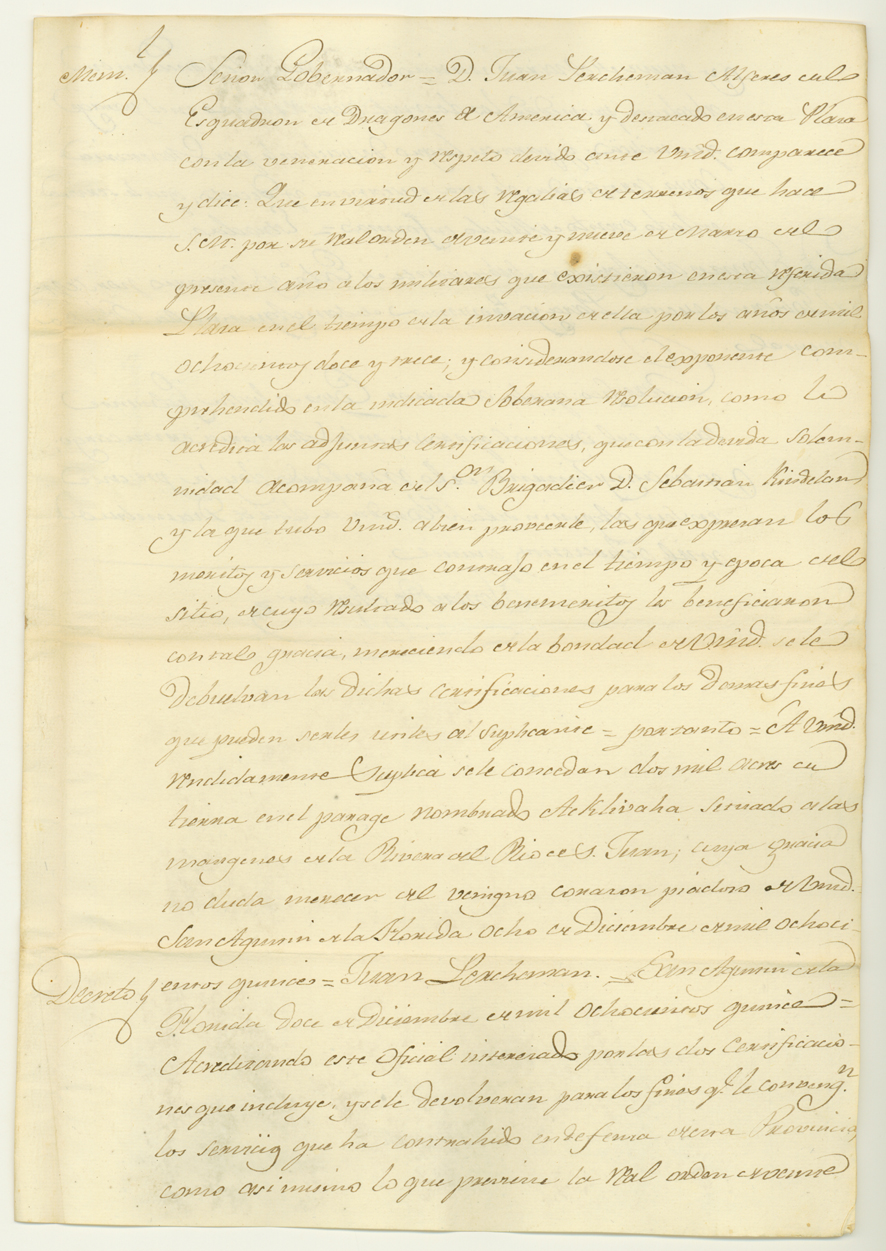 Mem.l Señor Gobernador = D. Juan Lercheman Alferes del
Esquadron de Dragones de America y destacado en esta Plaza
con la veneracion y respeto devido ante Vmd. comparece
y dice: Que en virtud de las regalias de terrenos que hace
S. M. por su Real orden de veinte y nueve de Marzo del
presente año a los militares que existieron en esta referida
Plaza en el tiempo de la invacion de ella por los años de mil
ochocientos doce y trece; y considerandose el exponente com-
prehendido en la indicada Soberana resolucion, como lo
acredita las adjuntas Certificaciones, que con la devida solem-
nidad acompaña del S.or Brigadier D. Sebastian Kindelan
y la que tubo Vmd. a bien proveerle, las que expresan los
meritos y servicios que contrajo en el tiempo y epoca del
sitio, de cuyo resultado a los benemeritos los beneficiaron
con tal gracia, mereciendo de la bondad de Vmd. se le
debuelvan las dichas certificaciones para los demas fines
que pueden serles utiles al Suplicante = por tanto = A Vmd.
rendidamente Suplica se le concedan dos mil acres de
tierra en el parage nombrado Acklivaha situado a las
margenes de la Rivera del Rio de S. Juan; cuya gracia
no duda merecer del venigno corazon piadoso de Vmd.
San Agustin de la Florida ocho de Diciembre de mil ochoci-
entos quince = Juan Lercheman. = San Agustin de la
Decreto Florida doce de Diciembre de mil ochocientos quince =
Acreditando este Oficial interesado por las dos Certificacio-
nes que incluye, y se le devolveran para los fines q.e le conveng.n
los servicios que ha contrahido en defensa de esta Provincia,
como asi mismo lo que previene la Real orden de veinte